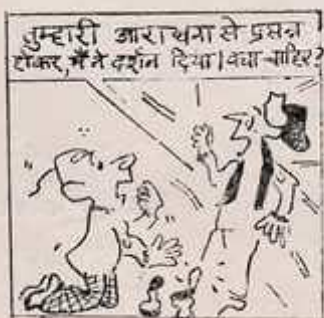 तुम्हारी आराधना से प्रसन्न
होकर, मैंने दर्शन दिया। क्या चाहिए?